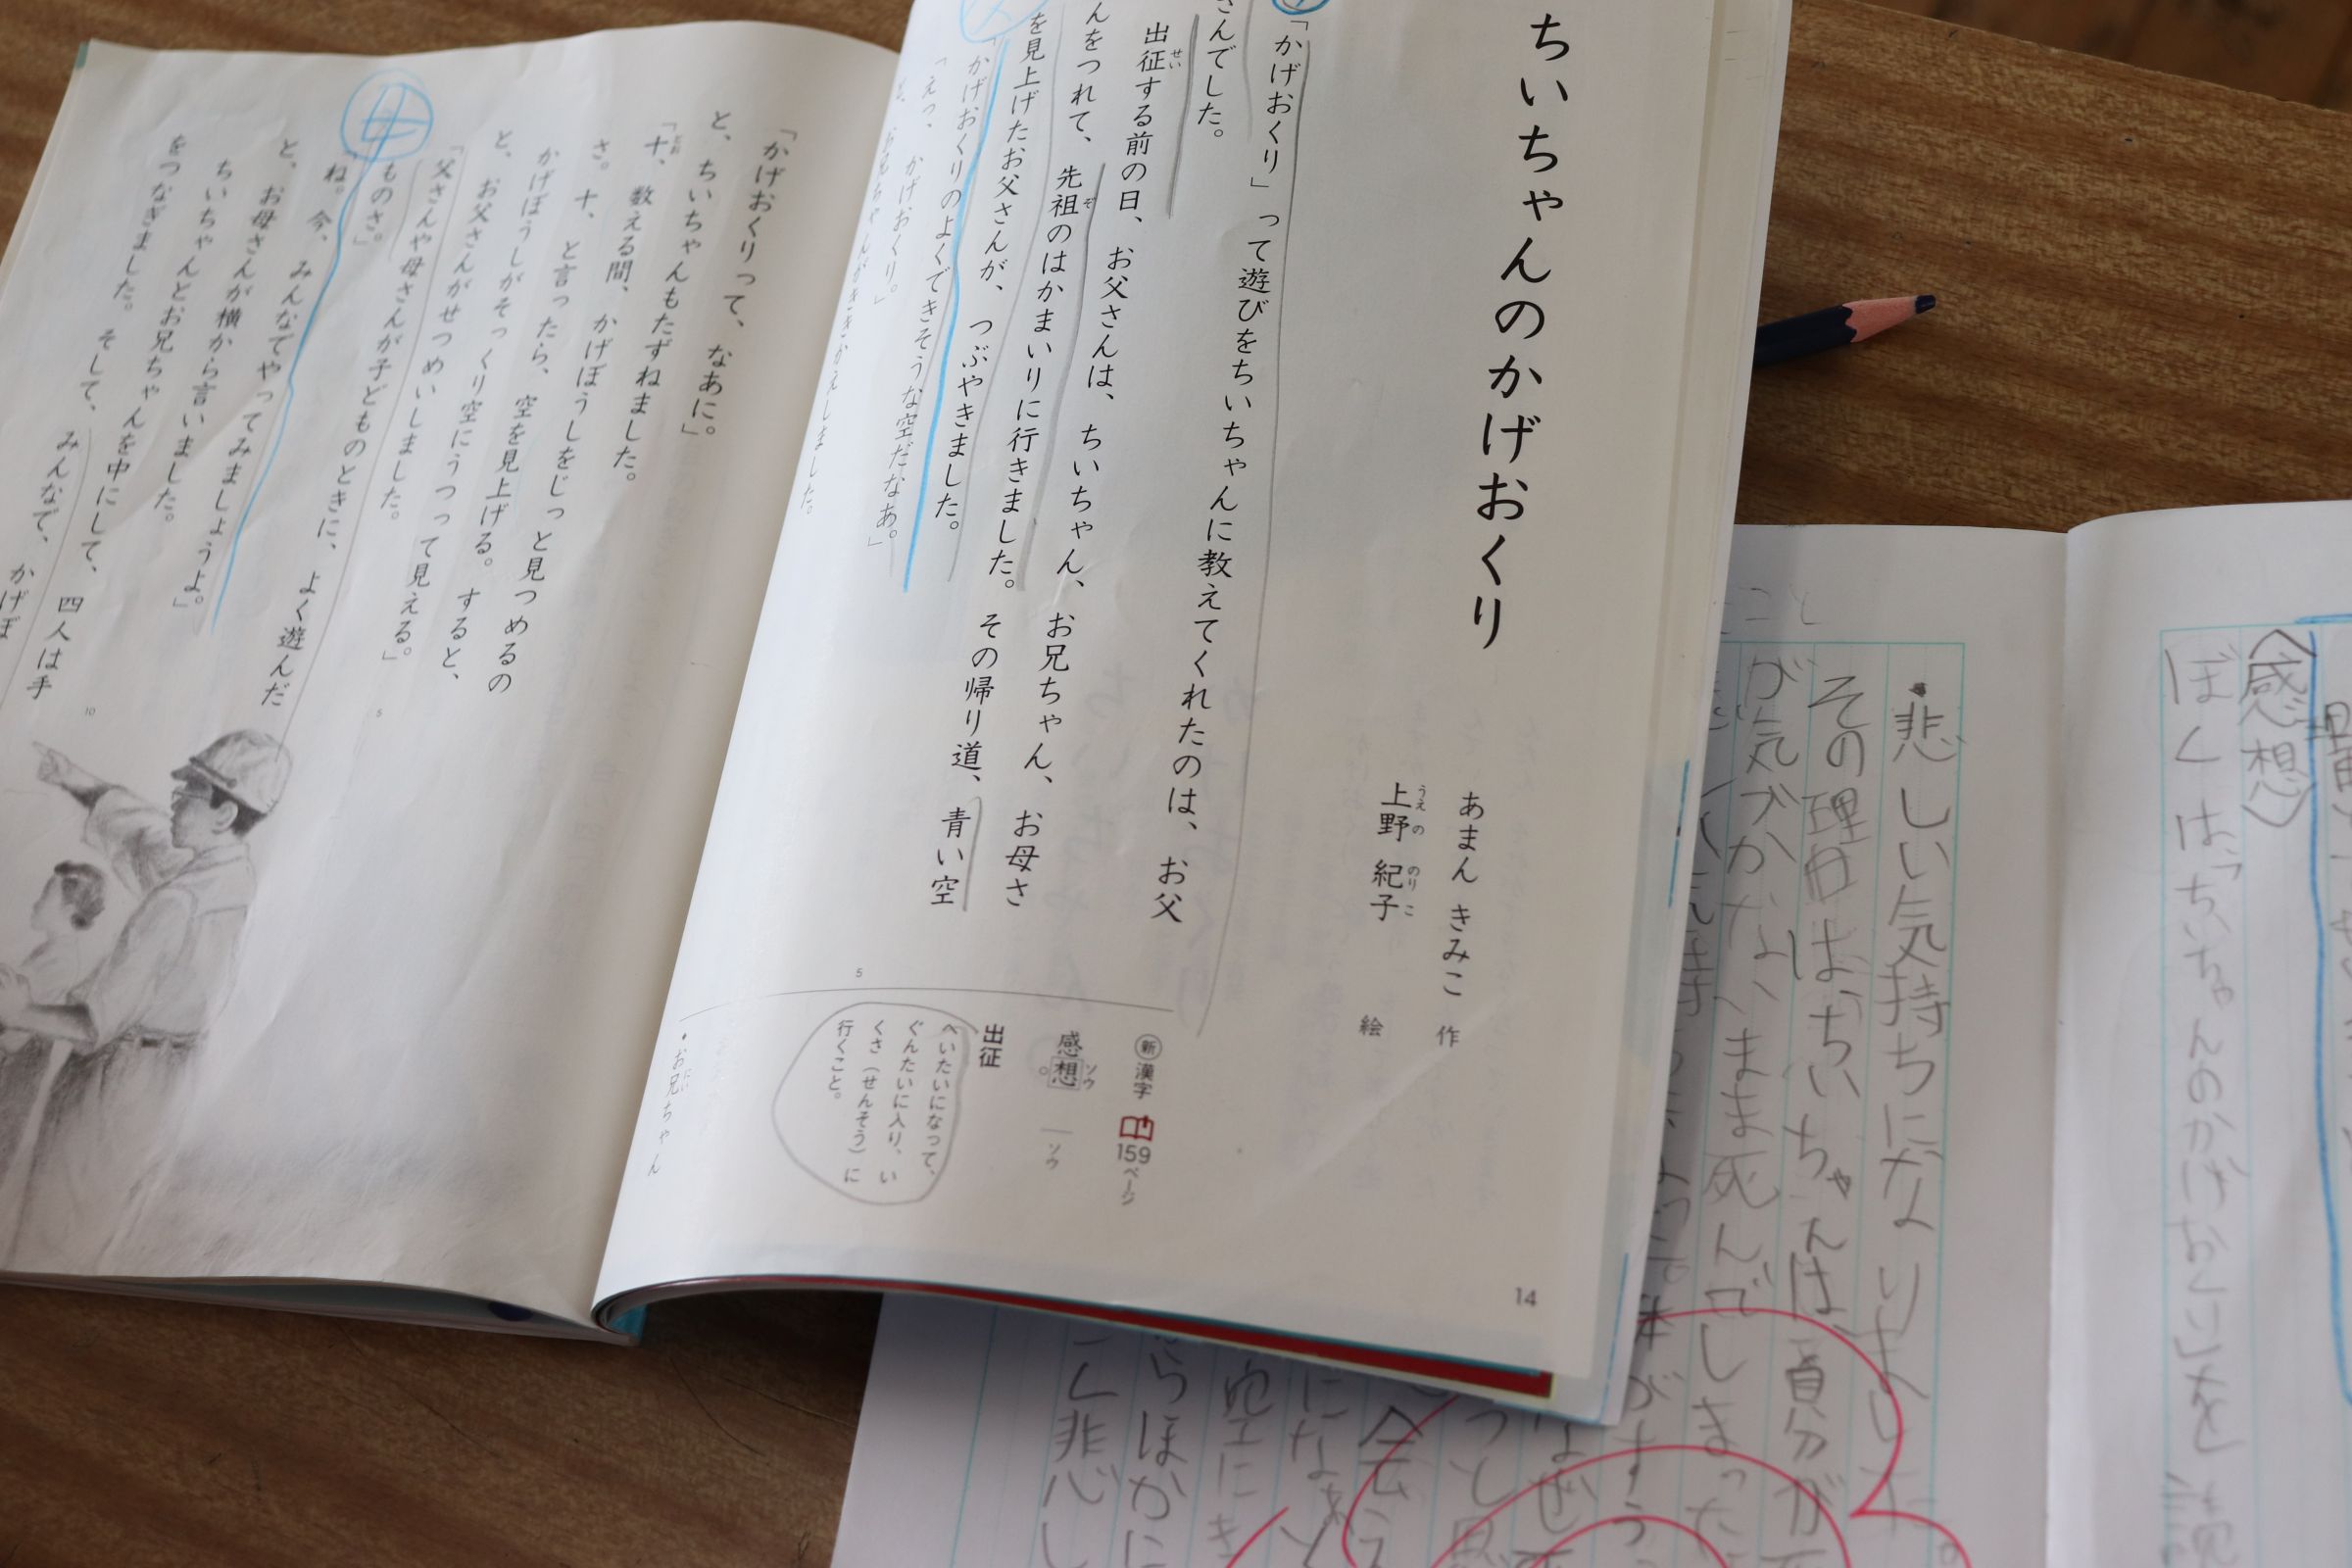 ちいちゃんのかげおくり
あまん きみこ 作
上野 紀子 絵
「かげおくり」って遊びをちいちゃんに教えてくれたのは、お父
さんでした。
出征する前の日、お父さんは、ちいちゃん、お兄ちゃん、お母さ
んをつれて、先祖のはかまいりに行きました。その帰り道、青い空
を見上げたお父さんが、つぶやきました。
「かげおくりのよくできそうな空だなあ。」
「えっ、かげおくり。」
と、お兄ちゃんがききかえしました。
5
新 漢字 159ページ
感想 ソウ
ソウ
出征
へいたいになって、
ぐんたいに入り、い
くさ(せんそう)に
行くこと。
・お兄ちゃん
14
「かげおくりって、なあに。」
と、ちいちゃんもたずねました。
「十、数える間、かげぼうしをじっと見つめるの
さ。十、と言ったら、空を見上げる。すると、
かげぼうしがそっくり空にうつって見える。」
と、お父さんがせつめいしました。
「父さんや母さんが子どものときに、よく遊んだ
ものさ。」
「ね。今、みんなでやってみましょうよ。」
と、お母さんが横から言いました。
ちいちゃんとお兄ちゃんを中にして、四人は手
をつなぎました。そして、みんなで、かげぼ
5
10
母
〈感想〉
ぼくは「ちいちゃんのかげおくり」を
・悲しい気持ちになりました。
その理由は、ちいちゃんは自分が
が気づかないまま死んでしまった